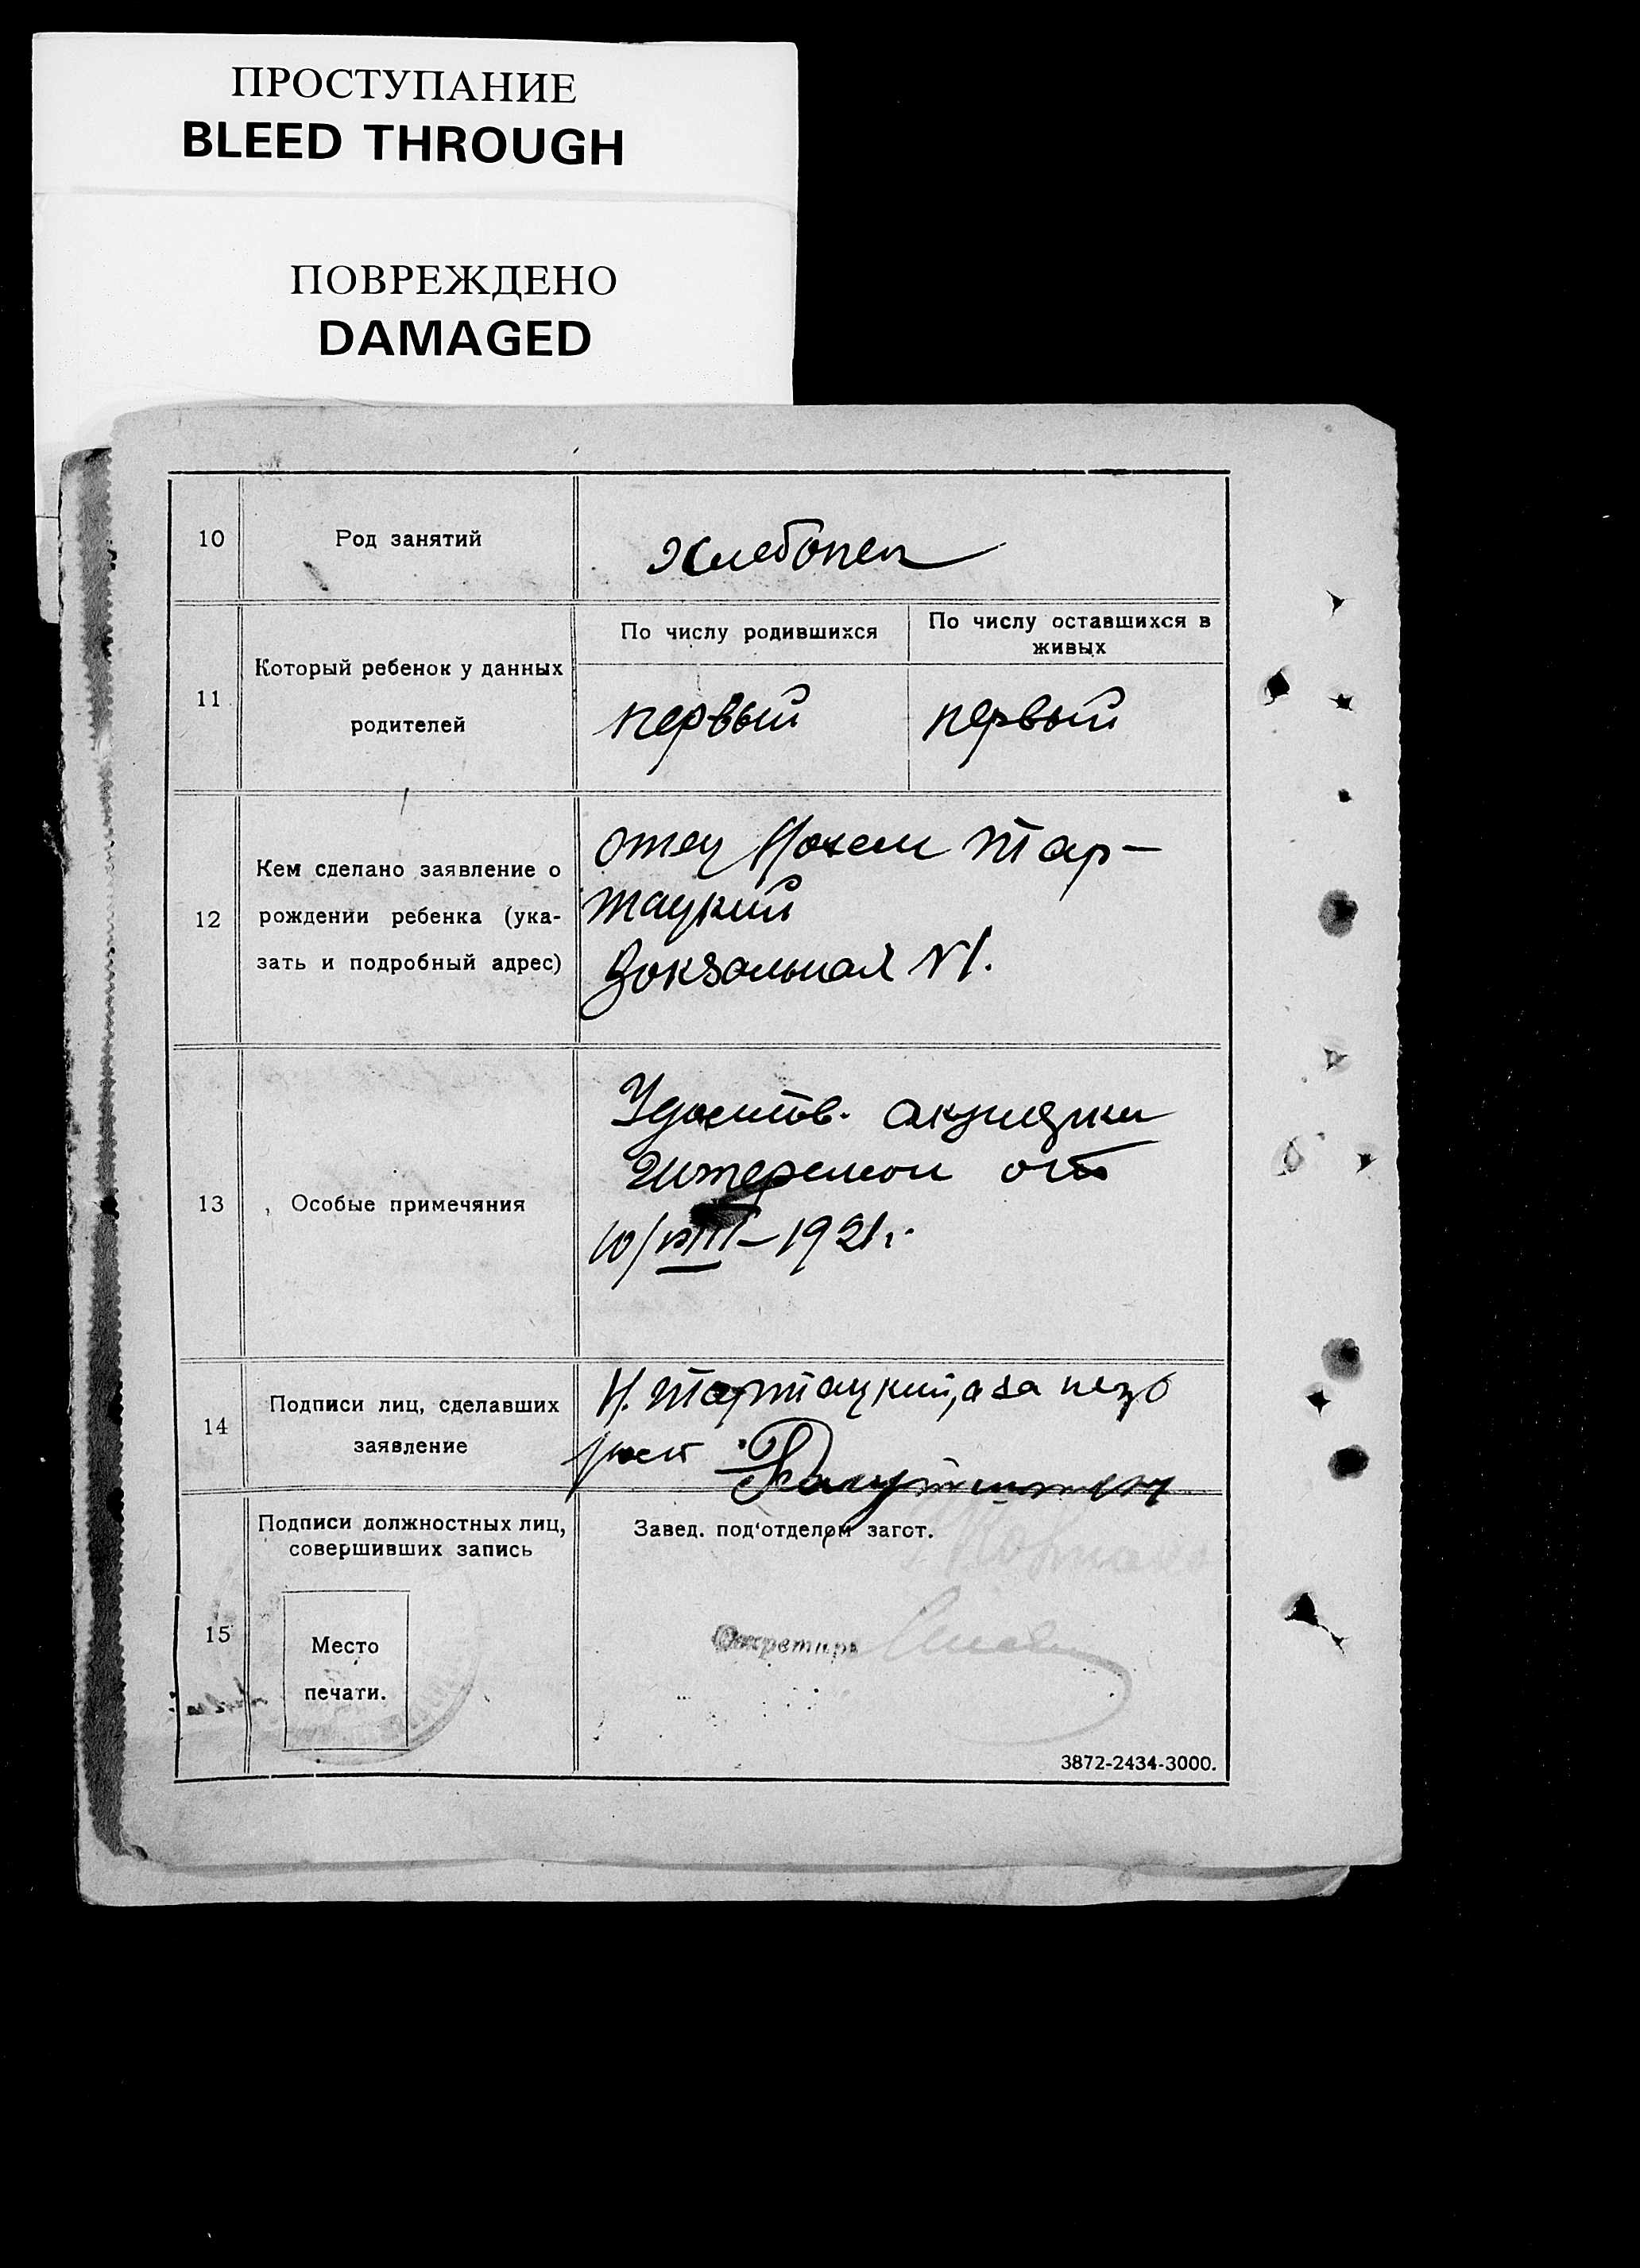 ПРОСТУПАНИЕ
BLEED THROUGH
ПОВРЕЖДЕНО
DAMAGED
10 Род занятий
Хлебопек
11 Который ребенок у данных
родителей
По числу родившихся
По числу оставшихся в
живых
первый
первый
12 Кем сделано заявление о
рождении ребенка (ука-
зать и подробный адрес)
отец Тар-
тацкий
Вокзальная №1.
13 Особые примечяния
Удостов. акушерки
от
10/VIII-1921г.
14 Подписи лиц, сделавших
заявление
Н. Тартацкий, а за негр
15 Подписи должностных лиц,
совершивших запись
Место
печати.
Завед. под'отделом загст.
Секретарь
3872-2434-3000.